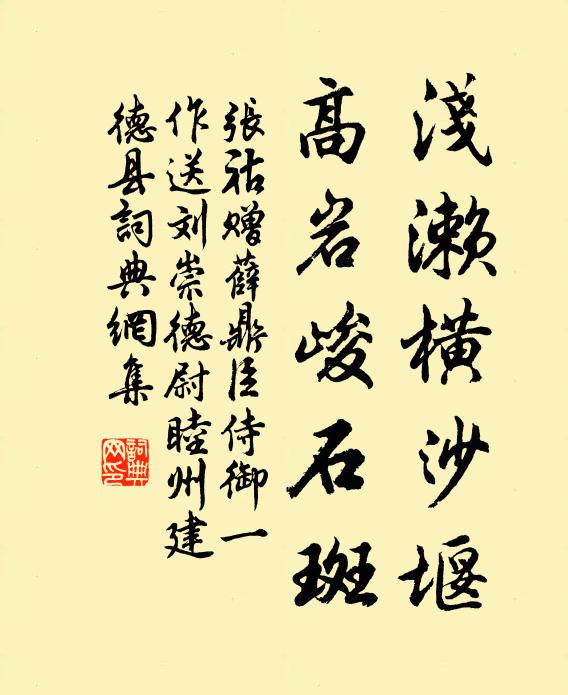 淺濑橫沙堰
高岩峻石斑
張祜赠薛鼎臣侍御一
作送刘崇德尉睦州建
德县詞典網集
詞典網印